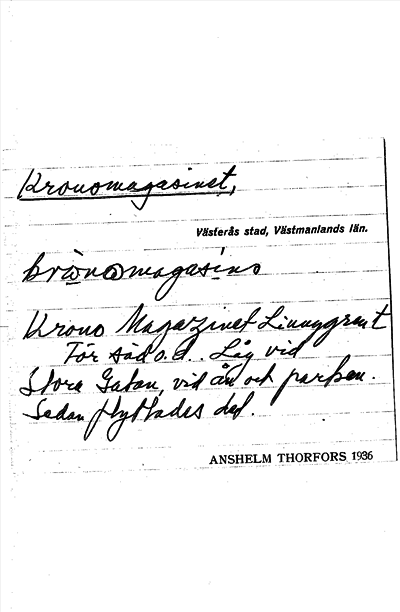 Kronomagasinet,
Västerås stad, Västmanlands län.
Krono Magazinet
För säd o.d. Låg vid
Stora Gatan, vid ån och parken.
Sedan flyttades det.
ANSHELM THORFORS 1936